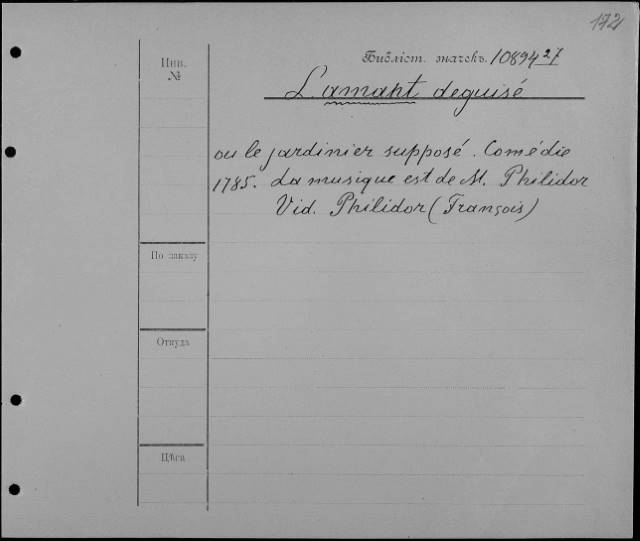 172
Инв.
№
Библіот. значекъ. 10894 27
L'amant deguisé
ou le jardinier supposé. Comédie
1785. La musique est de M. Philidor
Vid. Philidor (François)
По заказу
Откуда
Цѣна